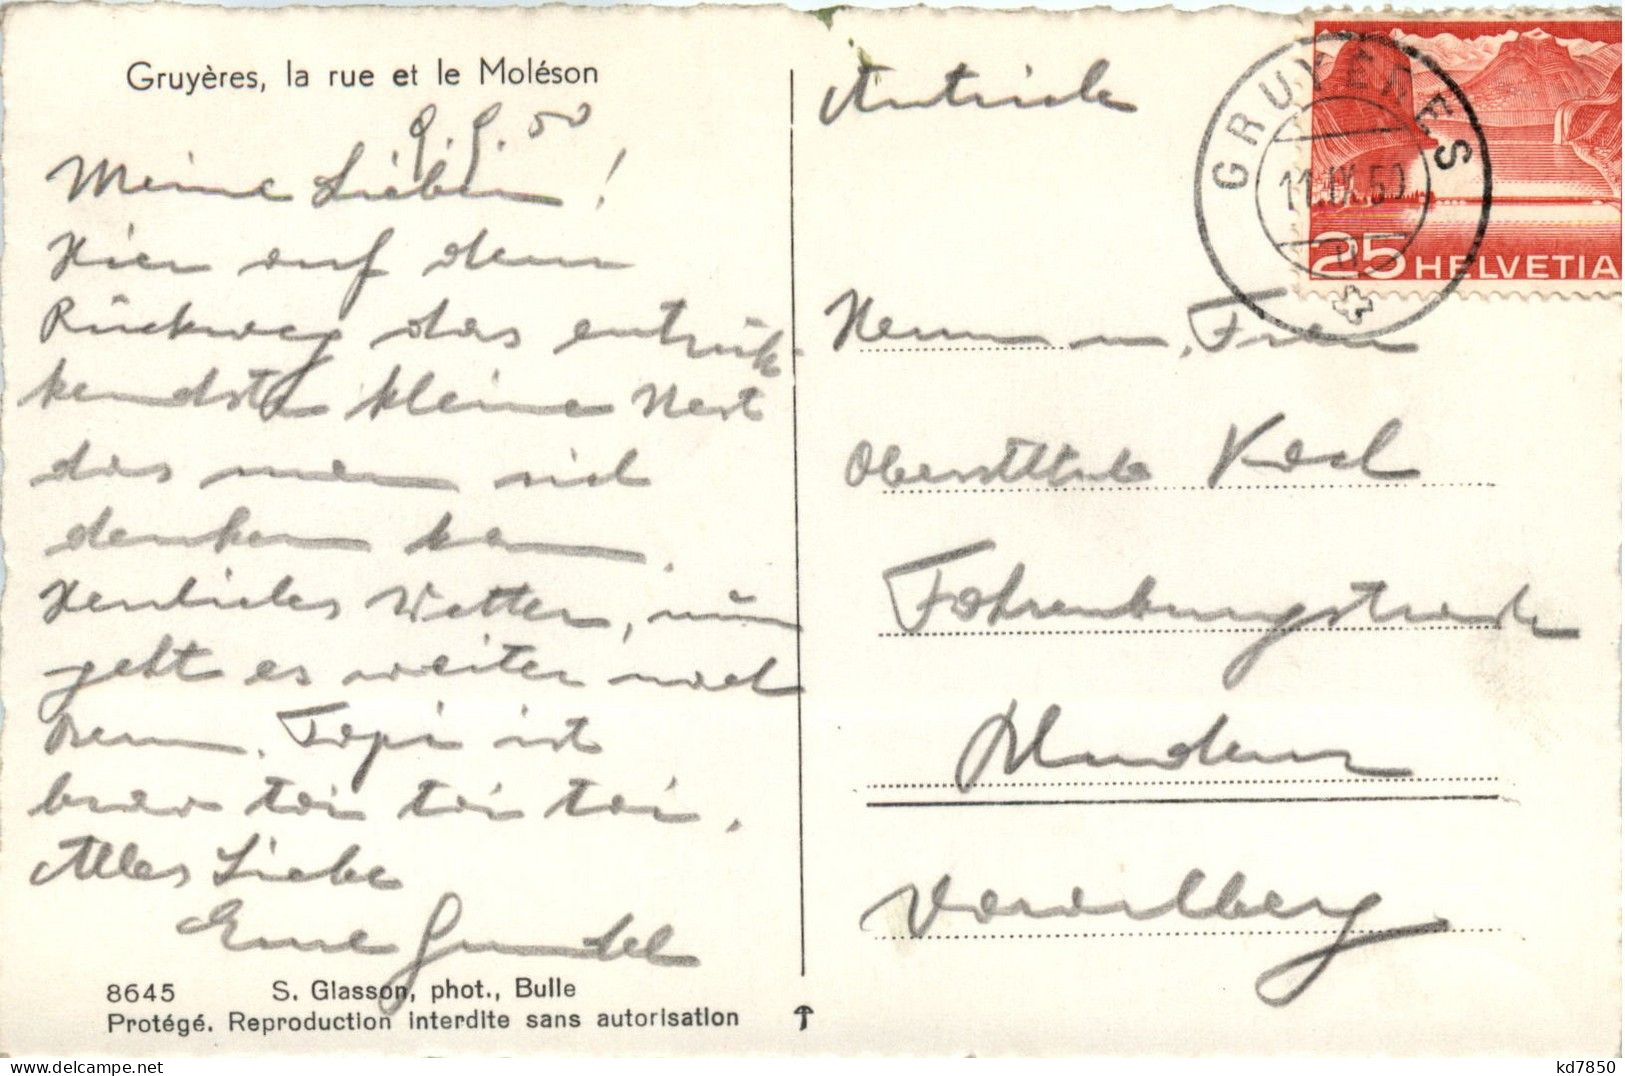 Gruyères, la rue et le Moléson
9.9.50
Meine Lieben!
Hier auf dem
Rückweg das entzük-
kendste kleine Nest
das man sich
denken kann.
Herrliches Wetter, nun
geht es weiter nach
Bern. Topi ist
brav toi toi toi.
Alles Liebe
Eure Gundel
8645 S. Glasson, phot., Bulle
Protégé. Reproduction interdite sans autorisation
Autriche
GRUYÈRES
11.IX.50
25 HELVETIA
Herrn u. Frau
Koch
Fohrenburgstrasse
Bludenz
Vorarlberg
kd7850